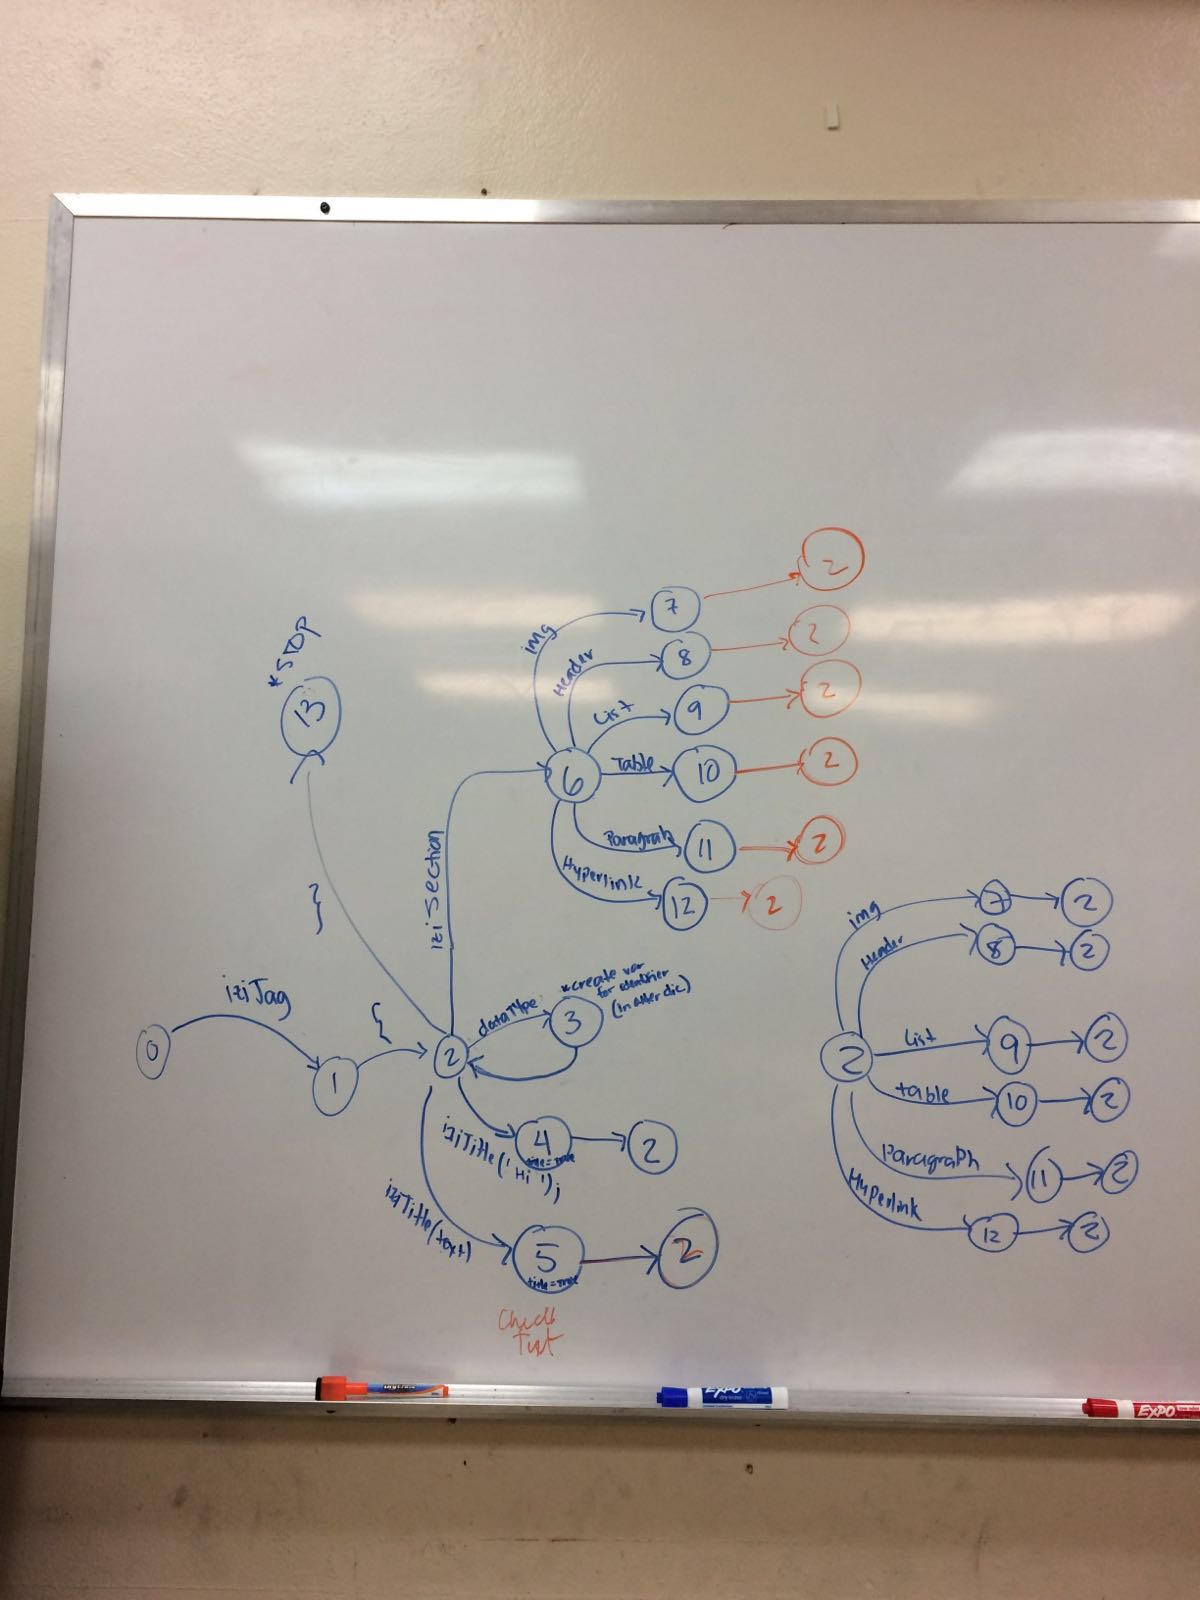 *STOP
13
}
iziTag
0
1
{
2
izisection
6
img
7
2
Header
8
2
List
9
2
Table
10
2
Paragraph
11
2
Hyperlink
12
2
dataType
3
*create var
for identifier
(in other dic)
iziTitle('Hi');
4
title=true
2
iziTitle(text)
5
title=true
2
Check
2
img
7
2
Header
8
2
List
9
2
table
10
2
ParagraPh
11
2
HyPerlink
12
2
EXPO
EXPO